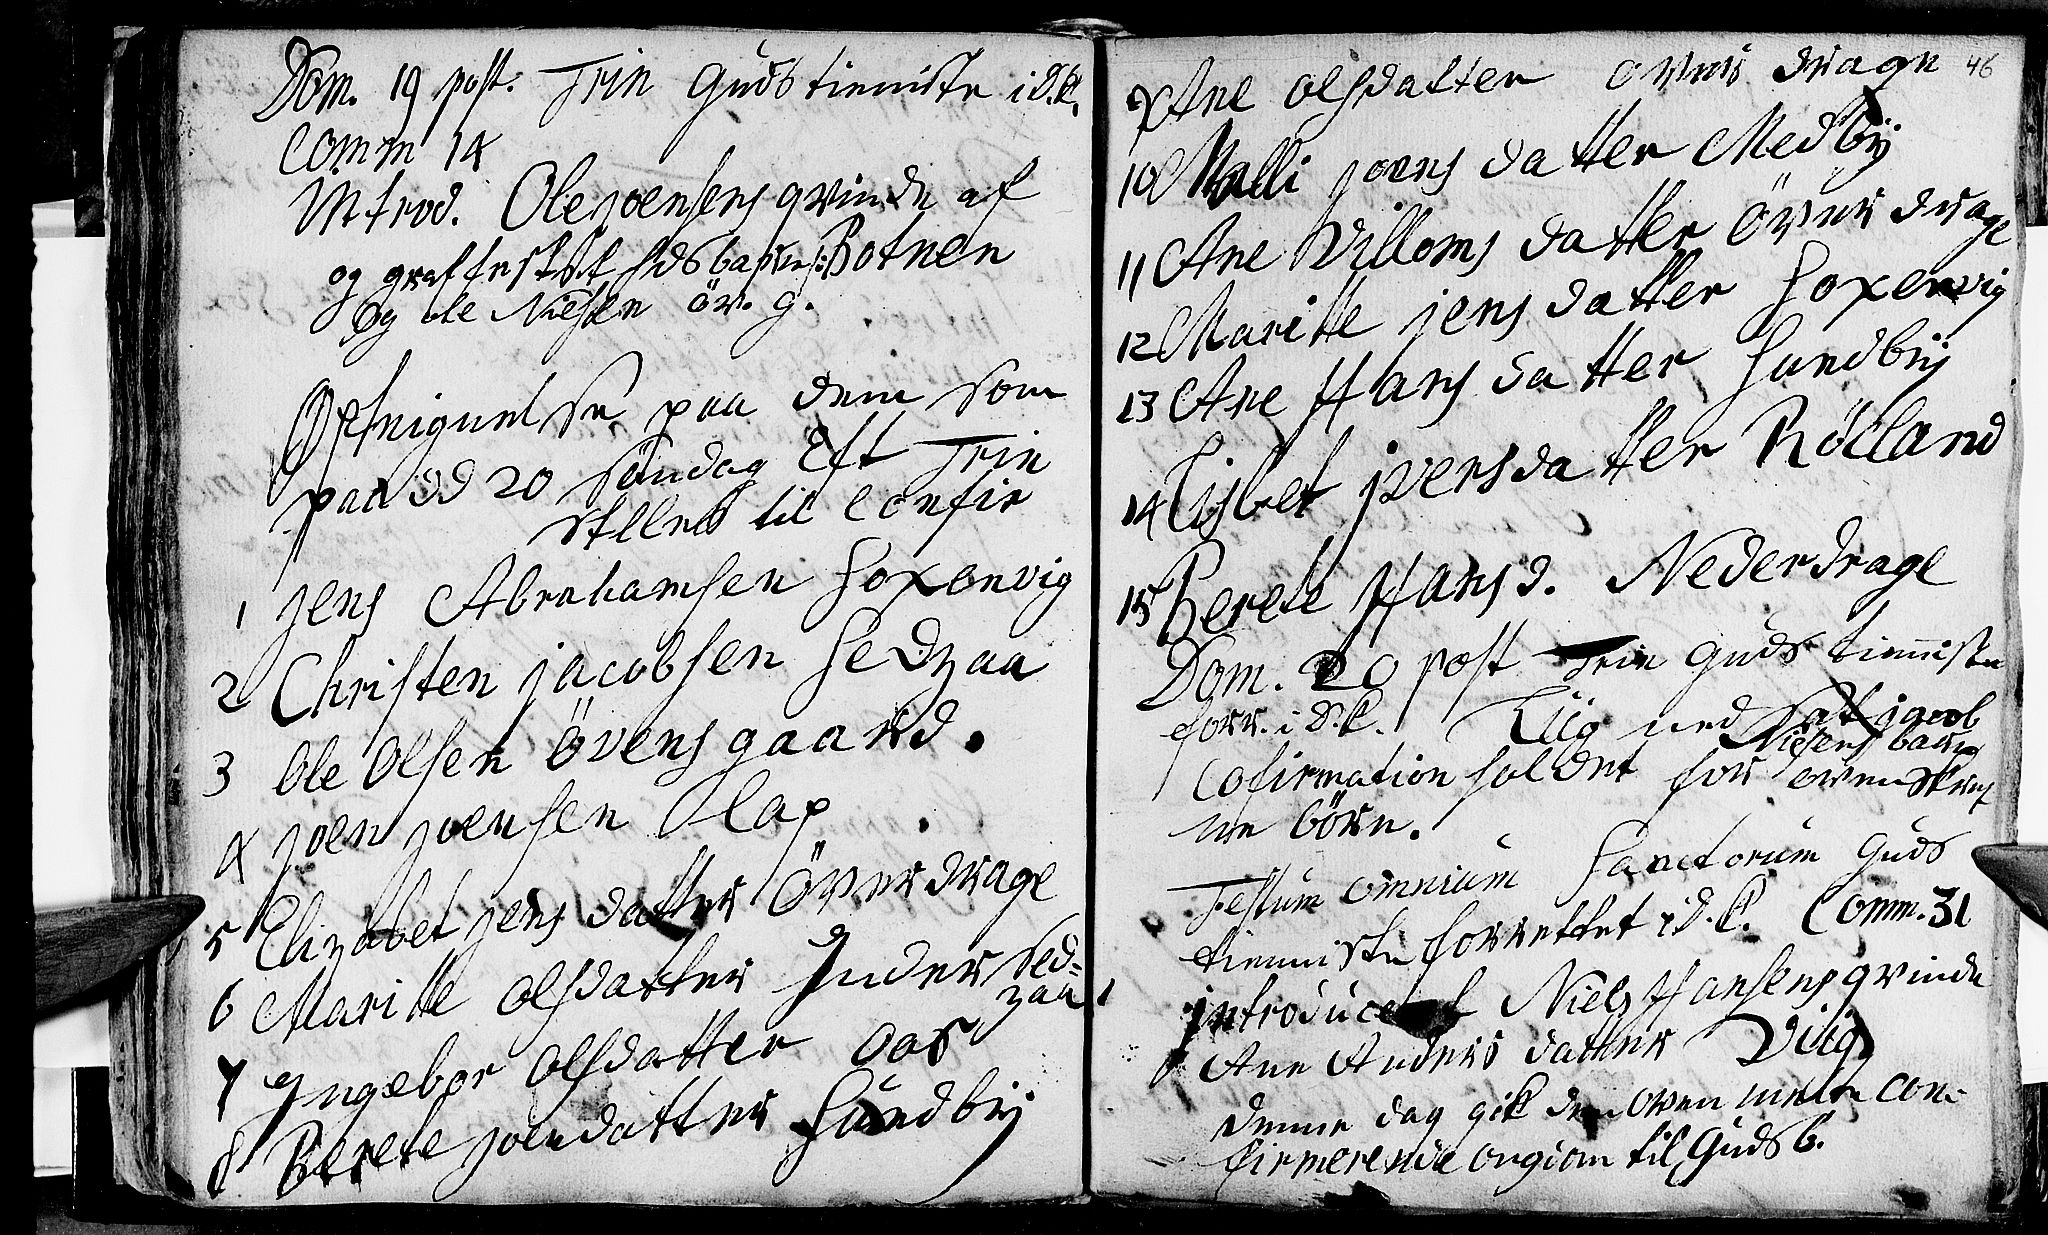 Dom. 19 post. Trin Gudstieniste i D.K.
Comm 14
Introd. Ole joensens qvinde af
og graffestet Botnen
og ole Nielsen öv. g.
paa dem som
paa dd 20 Söndag Eft Trin
stilles til Confir
1 Jens Abrahamsen Soxenvig
2 Christen jacobsen Sedzaa
3 Ole Olsen Övensgaard.
4 joen joensen Olap
5 Elizabet jens datter Överdrage
6 Maritte olsdatter Inder Sed=
zaa
7 Ingebor Olsdatter Oas
8 Berete joendatter Sundbÿ
46
9 Ane olsdatter over drage
10 Malli joens datter Medbÿ
11 Ane Villoms datter Över drage
12 Maritte jens datter Soxenvig
13 Ane Hans datter Sundbÿ
14 Lisbet jversdatter Röcland
15 Berete Hans d. Nederdrage
Dom. 20 post Trin Guds tienniste
forr. i D.K. Liig ned sat jacob
Nielsens barn
Cofirmation holdet for ovenskref
ne börn.
Festum omnium Sanctorum Guds
tienniste forrettet i D.K. Comm. 31
introducet Niels Hansens qvinde
Ane Anders datter Viig
denne dag gik den oven con-
firmerende ongdom til Guds b.